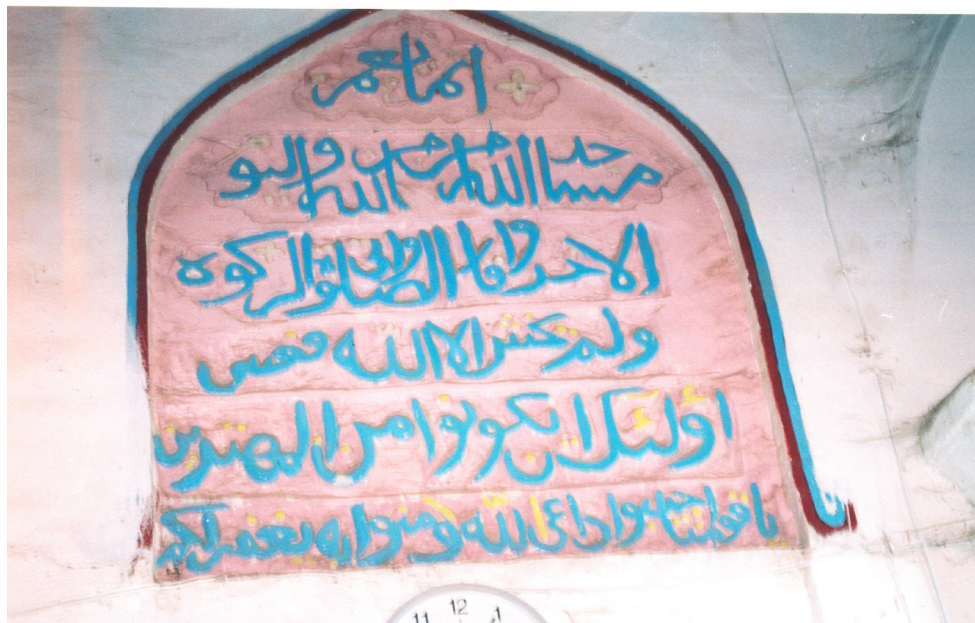 انما يعمر
مسجد الله من امن بالله واليو
الاخر واقام الصلوة واتى الزكوة
ولم يخش الا الله فعسى
اؤلئك ان يكونوا من المهتدين
يا قومنا اجيبوا داعى الله وامنوا به يغفر لكم
11 12 1